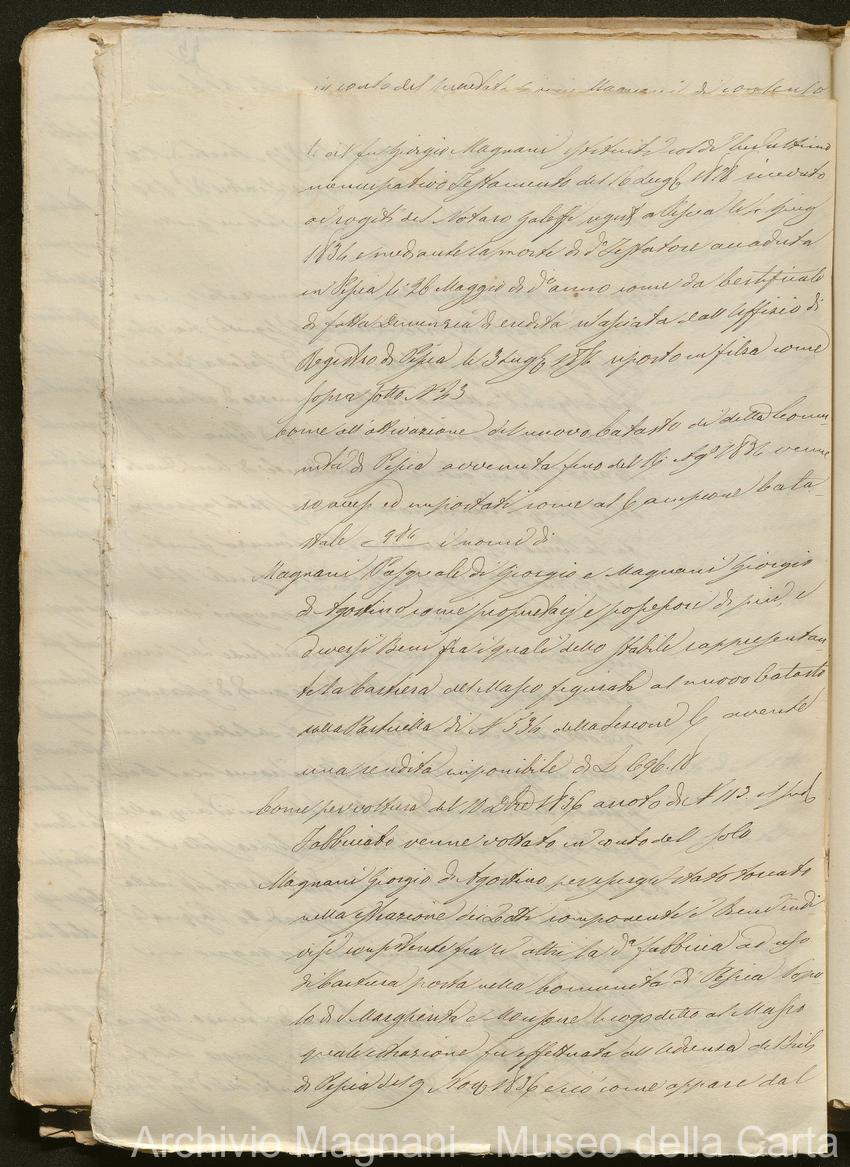 in conto del
li del fu Giorgio Magnani istituiti Eredi
nuncupativo Testamento del 16 Lug 1828 ricevuto
ai rogiti del Notaro Galeffi a Pescia
1834 e mediante la morte di do Testatore accaduta
in Pescia li 26 Maggio di do anno come da Certificato
di fatta denunzia di eredità rilasciata dall'Uffizio di
Registro di Pescia li 3 Lug riposto in filza come
sopra sotto No 23
Come all'attivazione del nuovo Catasto di detta Comu-
nità di Pescia avvenuta fino del 1836 venne
ro accesi ed impostati come al Campione Cata-
stale i nomi di
Magnani Pasquale di Giorgio e Magnani Giorgio
di Agostino come proprietarj e possessori di più, e
diversi Beni fra i quali detto Stabile rappresentan-
te la Cartiera del Masso figurata al nuovo Catasto
sulla Particella di N 534 della Sezione C avente
una rendita imponibile di L 696.18
Come per voltura del 10 1836 a noto di N 113. il sudo
Fabbricato venne voltato in conto del solo
Magnani Giorgio di Agostino per essergli stato toccato
nella estrazione dei Lotti componenti i Beni indi
visi consistente fra li altri la da fabbrica ad uso
di Cartiera posta nella Comunità di Pescia Popo
lo di S Margherita a Monsone luogo detto al Masso
quale estrazione fu effettuata all'udienza del
di Pescia del 9 1836 e ciò come appare dal
Archivio Magnani - Museo della Carta